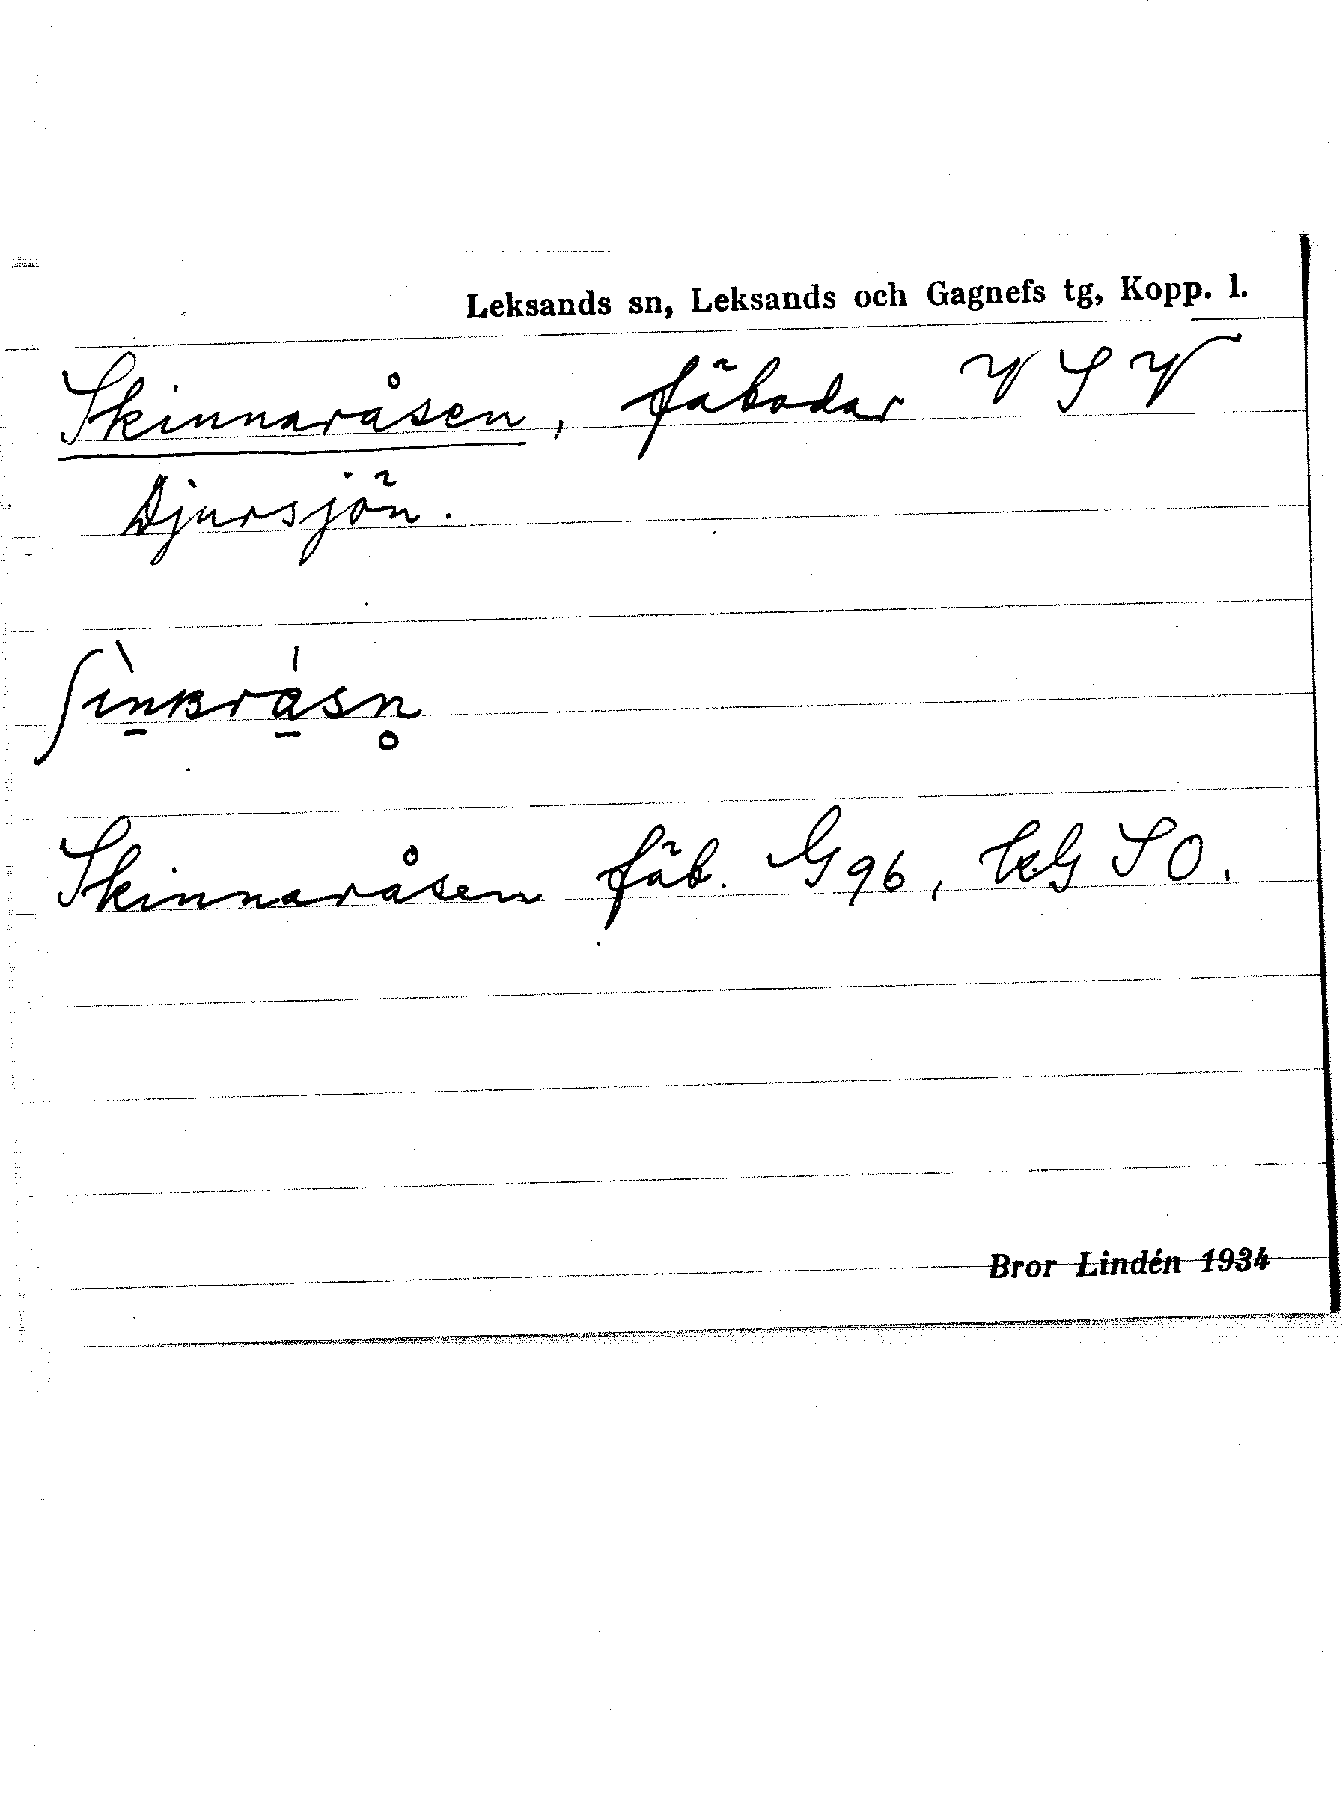 Leksands sn, Leksands och Gagnefs tg, Kopp. l.
Skinnaråsen, fäbodar VSV
Djursjön.
ʃìn̠ʙrá̠sn̥
Skinnaråsen fäb. G96, LeG SO.
Bror Lindén 1934